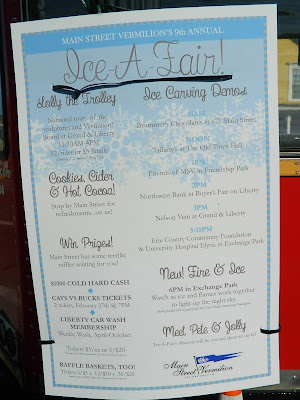 MAIN STREET VERMILION'S 9th ANNUAL
Ice-A-Fair!
Jolly the Trolley
Narrated tours of the
sculptures and Vermilion!
Board at Grand & Liberty
11:30AM-4PM
$2/rider or $5 family
Cookies, Cider
& Hot Cocoa!
Stop by Main Street for
refreshments...on us!
Win Prizes!
Main Street has some terrific
raffles waiting for you!
$1000 COLD HARD CASH
CAVS VS BUCKS TICKETS
2 tickets, February 27th @ 7PM
LIBERTY CAR WASH
MEMBERSHIP
Weekly Wash, April-October
Tickets $1/ea or 5/$20
RAFFLE BASKETS, TOO!
Ice Carving Demos
11AM
Brummer's Chocolates at 672 Main Street
NOON
Tiffany's at The Old Town Hall
1PM
Friends of MSV in Friendship Park
2PM
Northwest Bank at Buyer's Fair on Liberty
3PM
Nelson Vein at Grand & Liberty
5:15PM
Erie County Community Foundation
& University Hospital Elyria in Exchange Park
New! Fire & Ice
6PM in Exchange Park
Watch as ice and flames work together
to light up the night sky.
Meet Pete & Jolly
Main
Street Vermilion